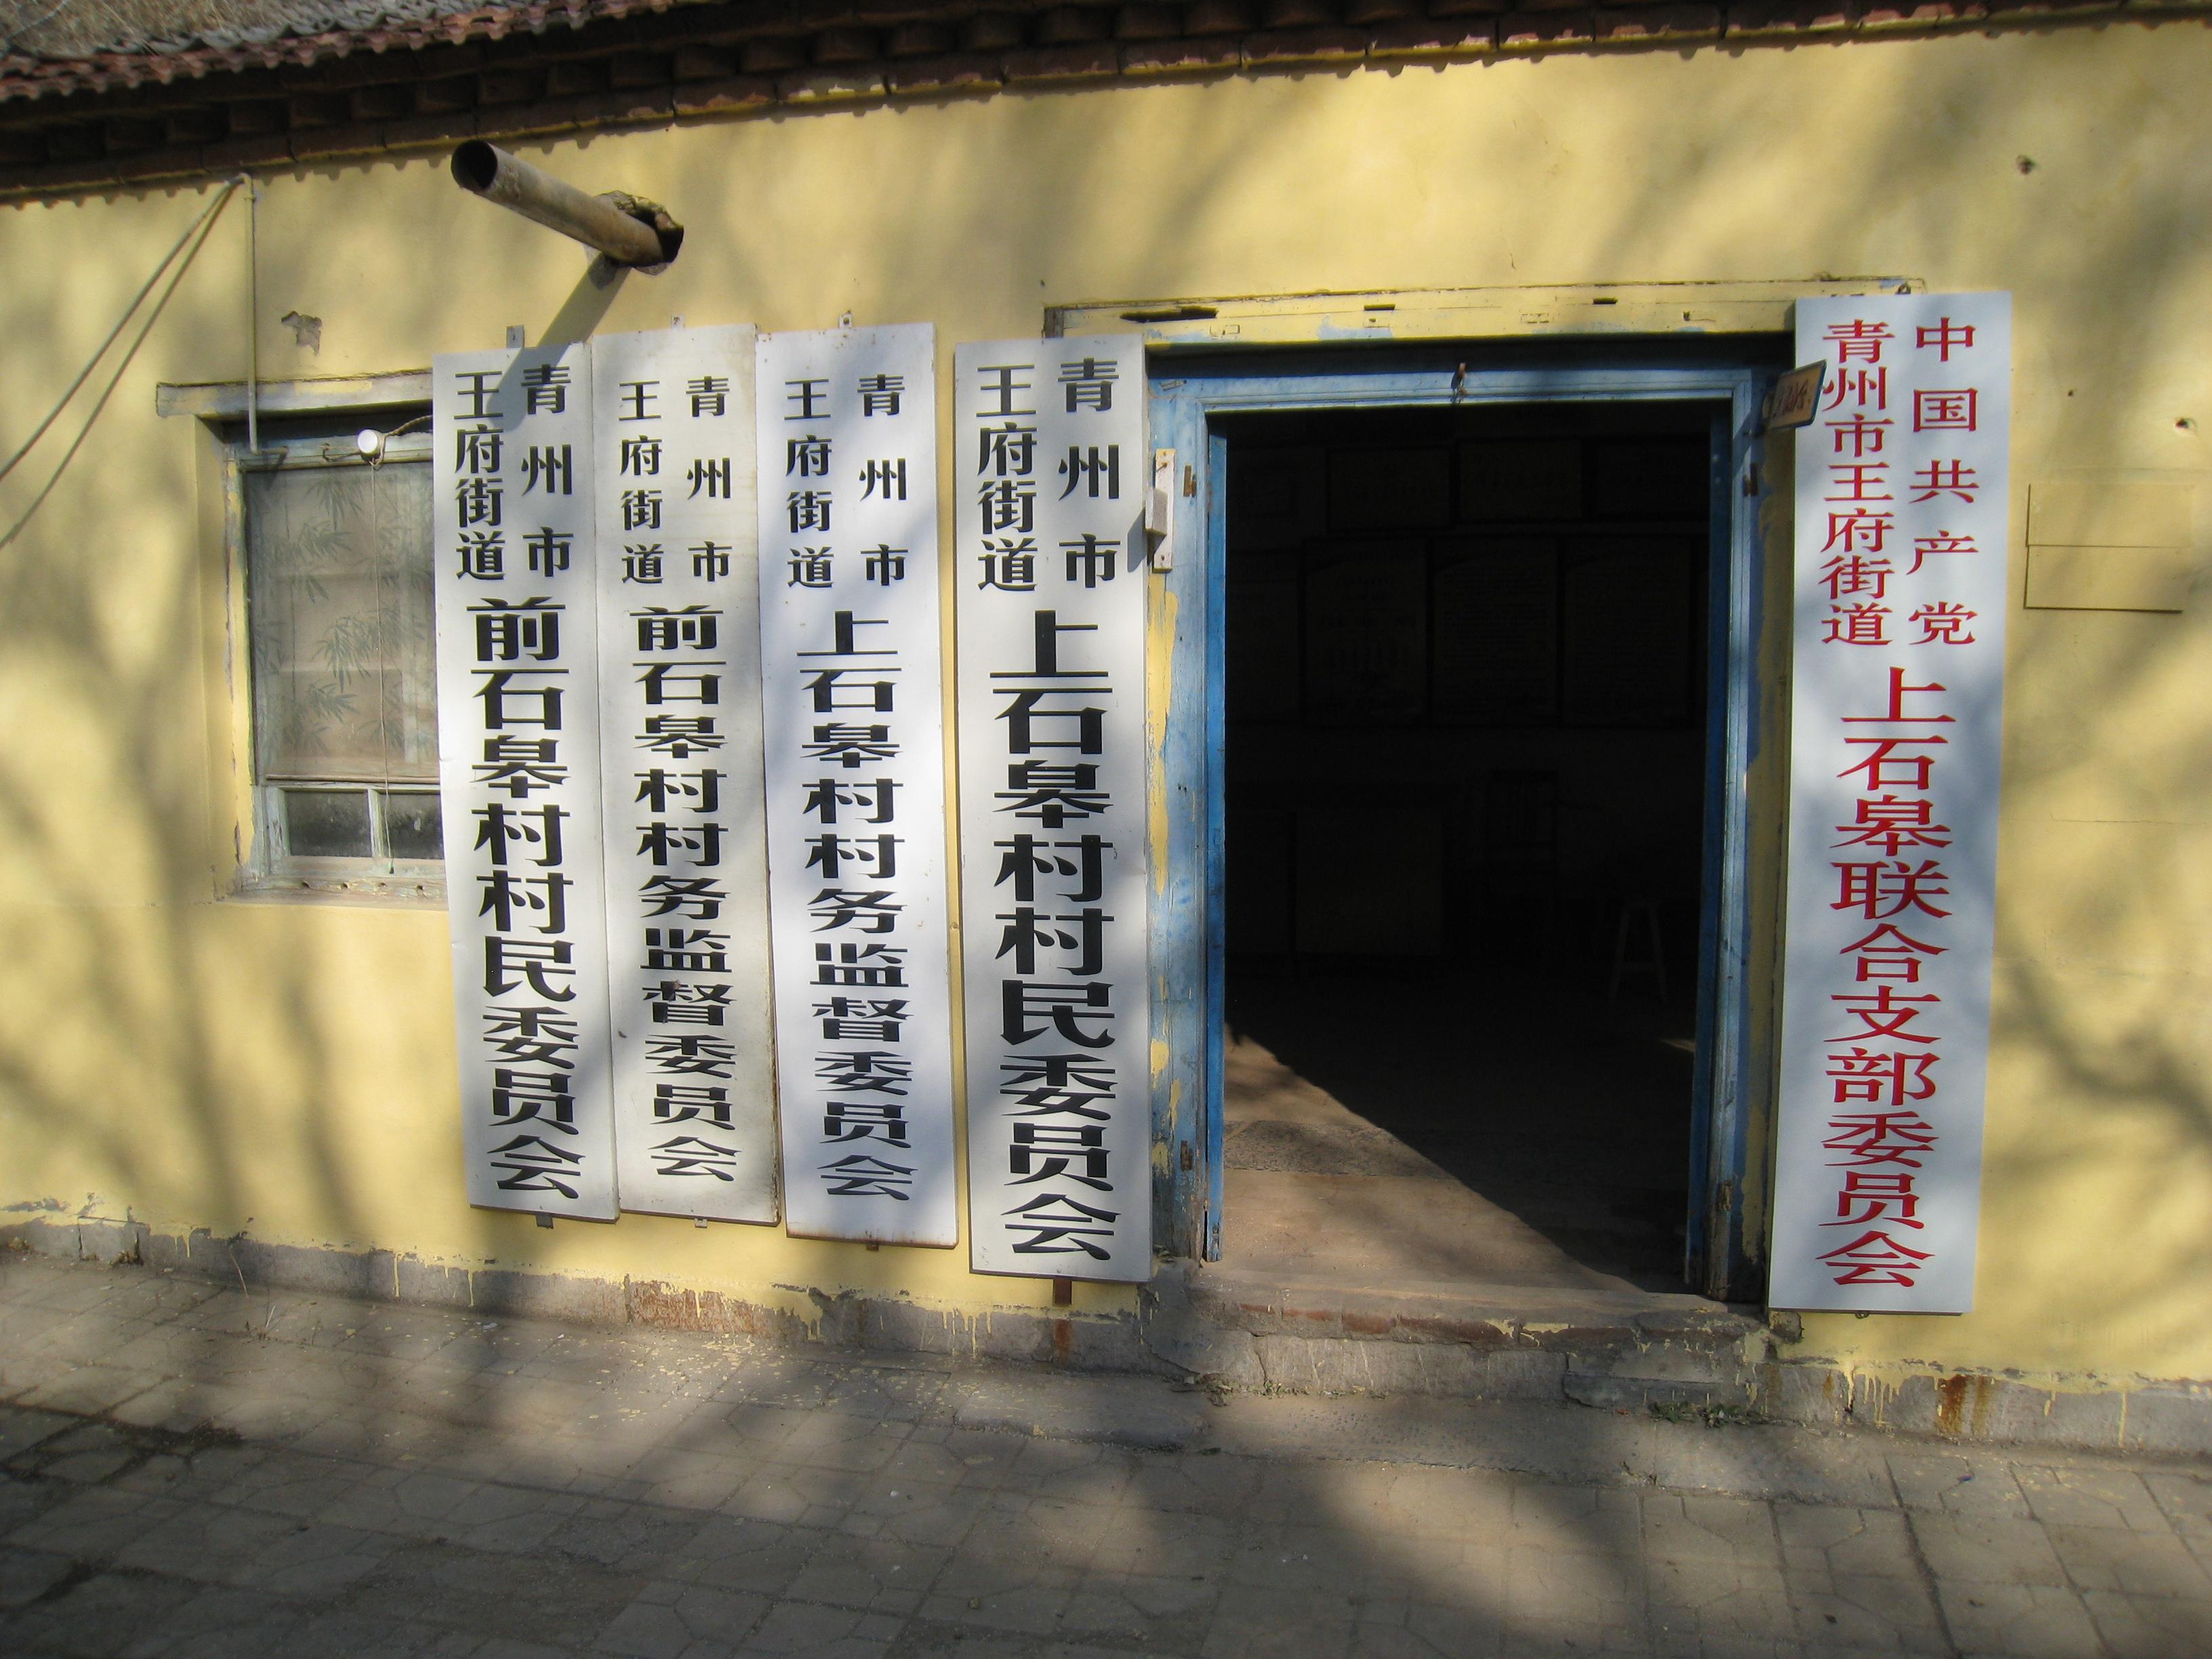 青州市
王府街道
前石皋村村民委员会
青州市
王府街道
前石皋村村务监督委员会
青州市
王府街道
上石皋村村务监督委员会
青州市
王府街道
上石皋村村民委员会
中国共产党
青州市王府街道
上石皋联合支部委员会